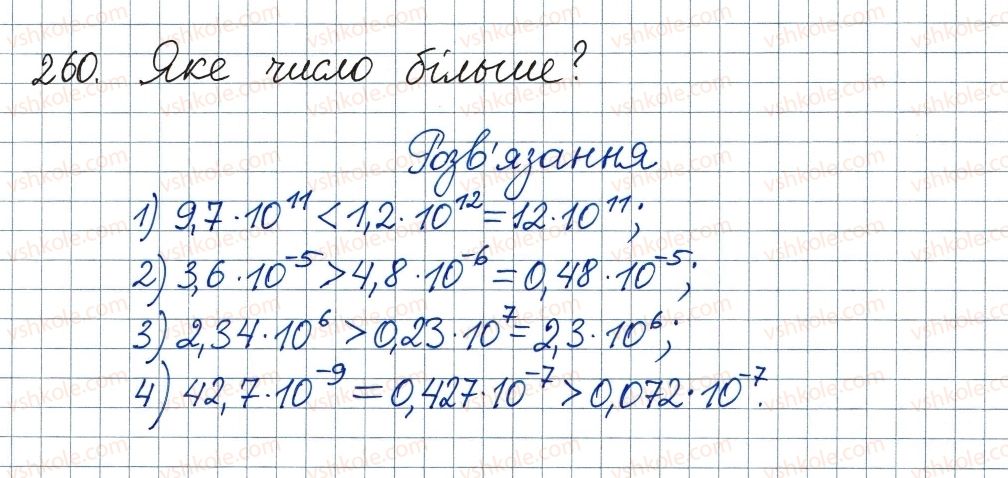 260. Яке число більше?
Розв'язання
1) 9,7·10¹¹ < 1,2·10¹² = 12·10¹¹;
2) 3,6·10⁻⁵ > 4,8·10⁻⁶ = 0,48·10⁻⁵;
3) 2,34·10⁶ > 0,23·10⁷ = 2,3·10⁶;
4) 42,7·10⁻⁹ = 0,427·10⁻⁷ > 0,072·10⁻⁷.